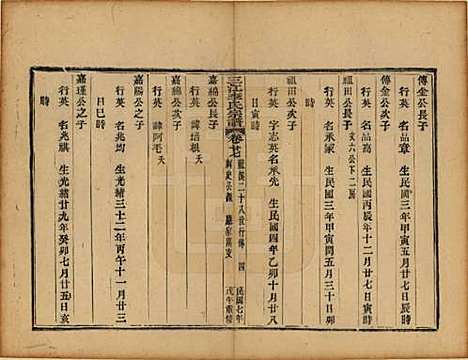 傳金公長子
行英 名品章 生民國三年甲寅 月 廿五日寅
時
傳金公次子
行英 名品高 生民國丙辰年十二月廿二日戌時
文六公下二房
祖田公長子
行英 名承 生民國三年甲寅閏五月三十日卯
時
祖田公次子
行英 字志英名承先 生民國四年乙卯十月廿八
日寅時
三江李氏宗譜 卷廿七 民國七年 戊午重修
嘉綿公長子
行英 諱培根夭
嘉綿公次子
行英 諱阿毛夭
嘉賜公之子
行英 名兆均 生光緒三十二年丙午十一月廿三
日巳時
嘉瑾公之子
行英 名兆麒 生光緒廿九年癸卯七月廿五日亥
時